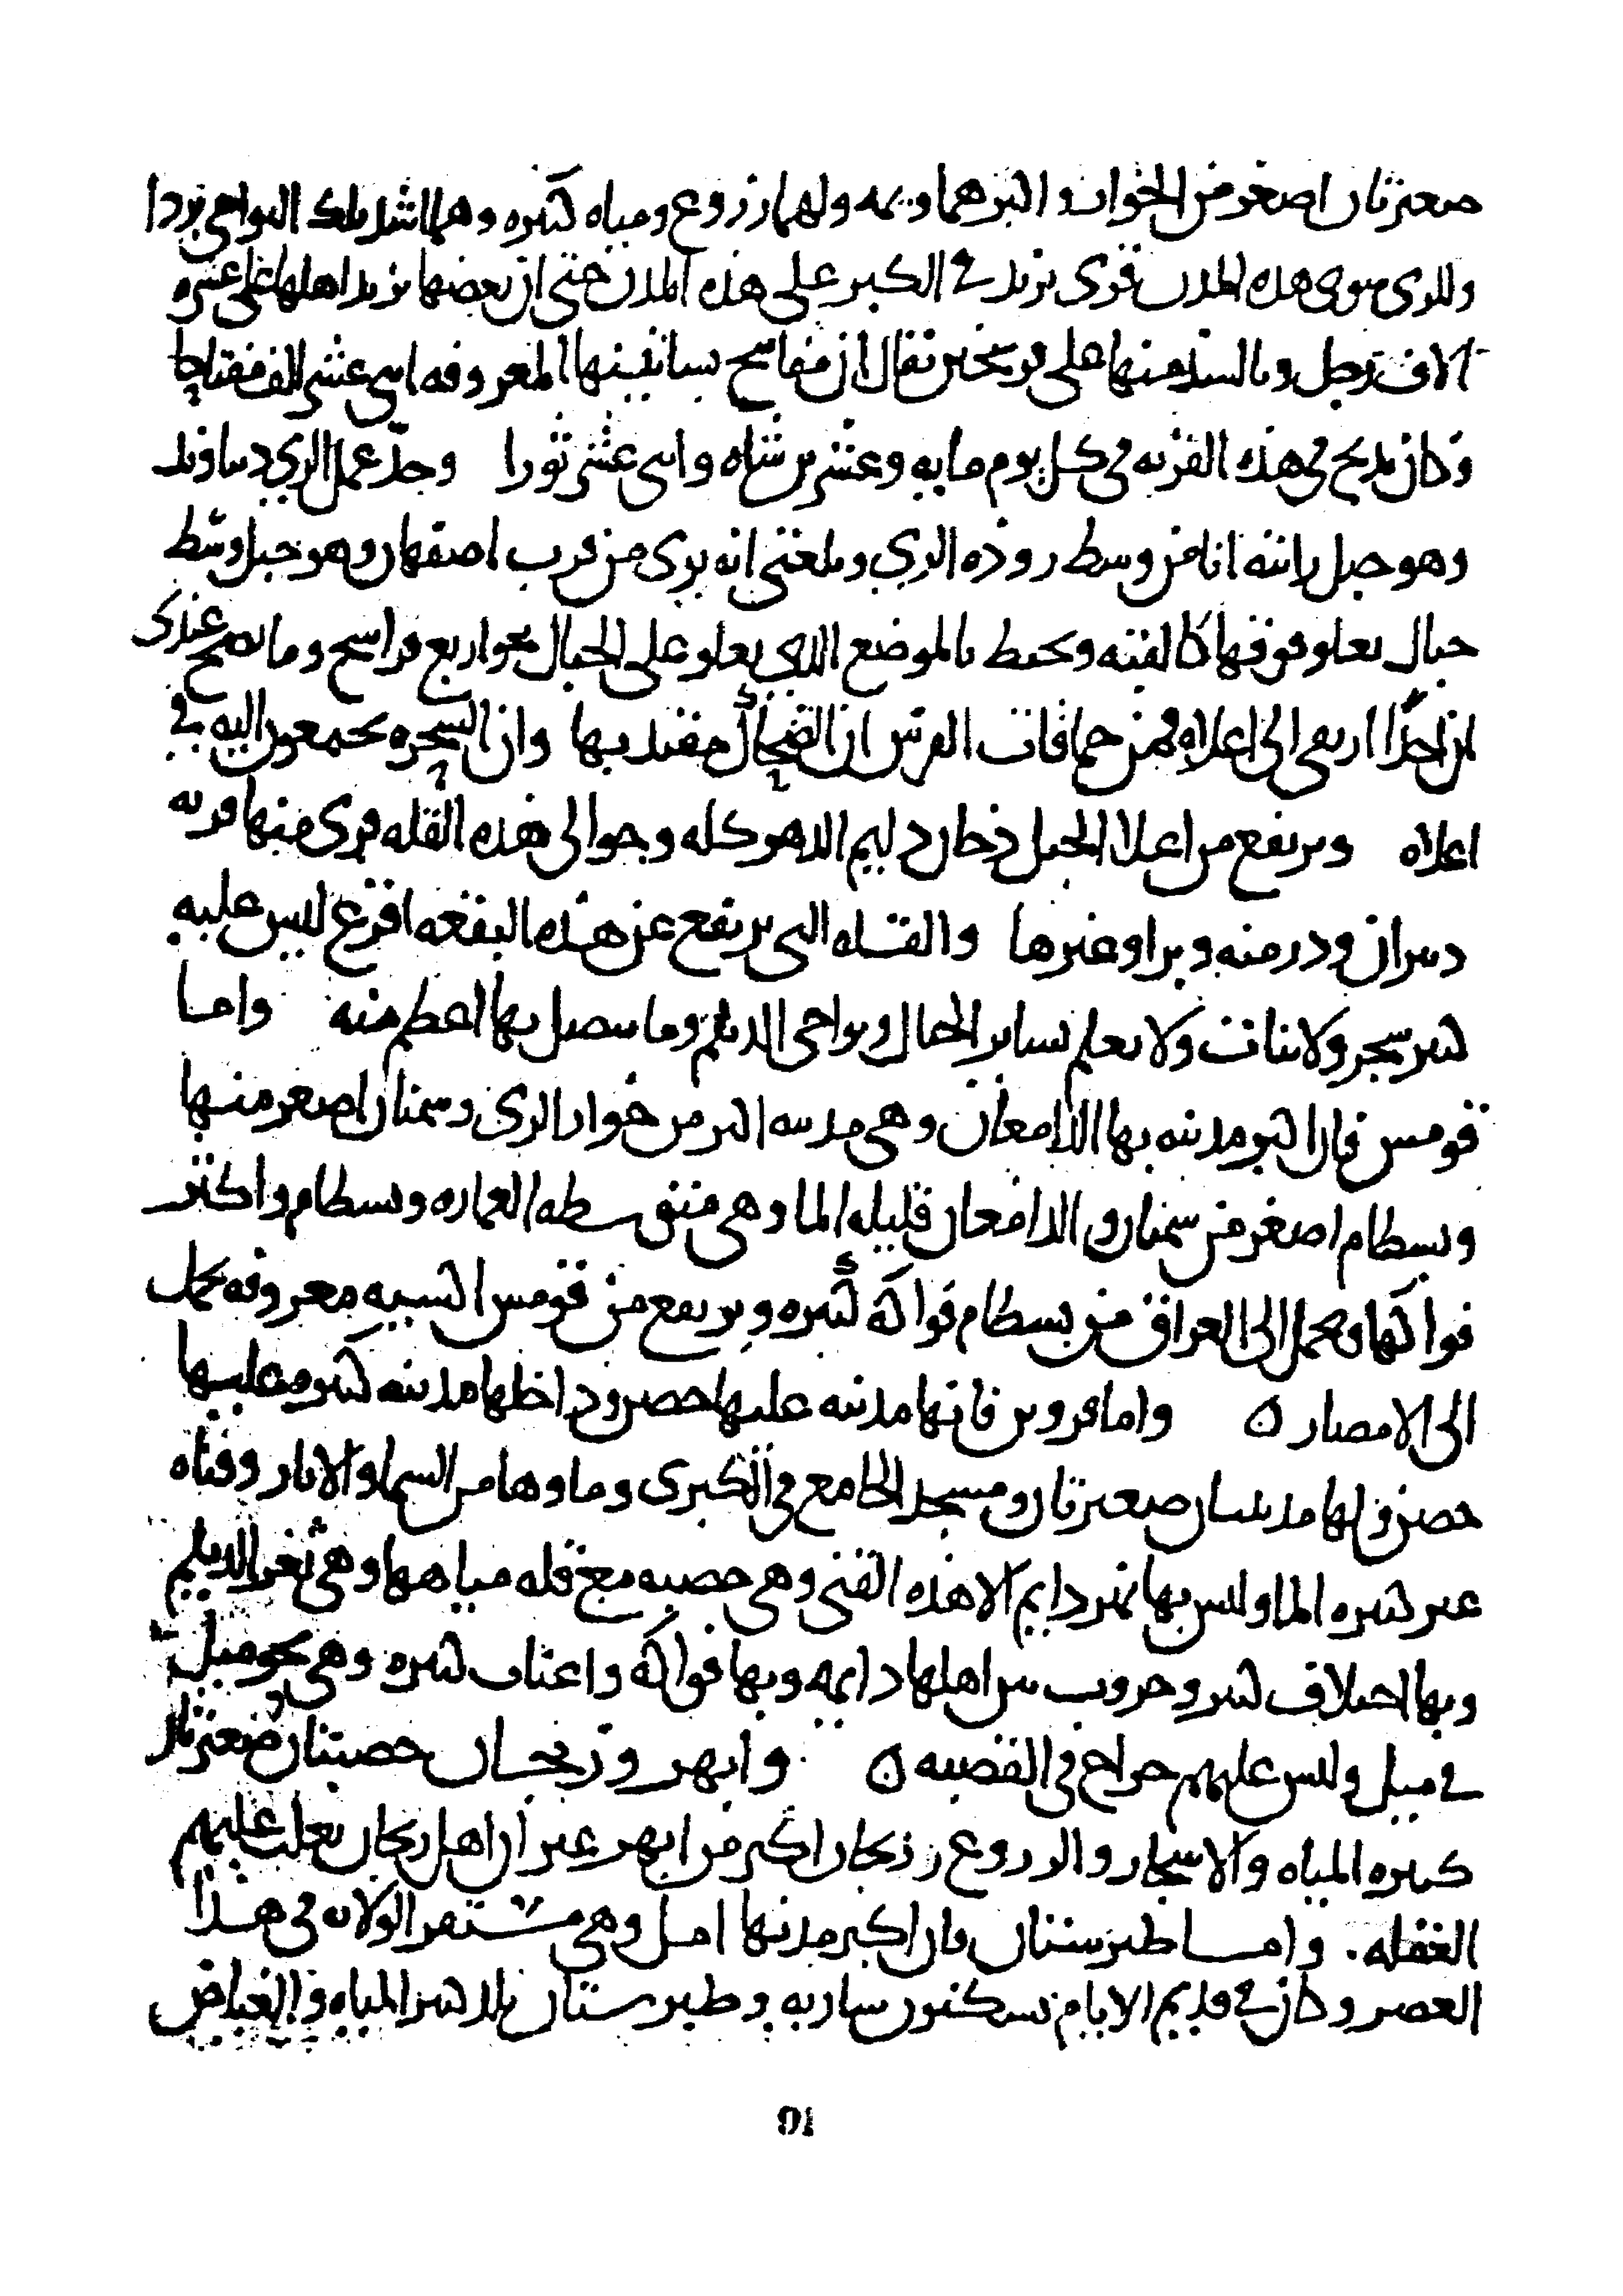 صغيرتان اصغر من الخوار واكبرهما ويمه ولهما زروع ومياه كثيره وهما اشد تلك النواحي بردا
وللري سوى هذه المدن قرى تزيد في الكبر على هذه المدن حتى ان بعضها يزيد اهلها على عشره
الاف رجل وبالسد منها على فرسخين يقال ان مفاتيح بساتينها المعروفه اثني عشر الف مفتاحا
وكان يذبح في هذه القريه في كل يوم مايه وعشرين شاه واثني عشر ثورا وحد عمل الري دنباوند
وهو جبل رايته انا من وسط روذه الري وبلغني انه يرى من قرب اصفهان وهو جبل وسط
جبال يعلو فوقها كالقبه ويحيط بالموضع الذي يعلو على الجبال نحو اربع فراسخ وما يصح عندي
ان احدا ارتقى الى اعلاه فمن حماقات الفرس ان الضحاك مقيد بها وان السحره يجتمعون اليه في
اعلاه ويرتفع من اعلا الجبل دخان دايم الدهر كله وحوالى هذه القله قرى منها قريه
دبيران ودرمنه وبرا وغيرها والقله التي يرتفع عن هذه البقعه اقرع ليس عليه
كبير شجر ولا نبات ولا يعلم بساير الجبال ونواحي الديلم وما يتصل بها اعظم منه واما
قومس فان اكبر مدينه بها الدامغان وهي مدينه اكبر من خوار الري وسمنان اصغر منها
وبسطام اصغر من سمنان والدامغان قليله الما وهي متوسطه العماره وبسطام واكثر
فواكها ويحمل الى العراق من بسطام فواكه كثيره ويرتفع من قومس اكسيه معروفه تحمل
الى الامصار ه واما قزوين فانها مدينه عليها حصن وداخلها مدينه كبيره عليها
حصن ولها مدينتان صغيرتان ومسجد الجامع في الكبرى وماوها من السما والابار وقناه
غير كثيره الما وليس بها نهر دايم الا هذه القنى وهي خصبه مع قله مياهها وهي ثغر الديلم
وبها اختلاف كثير وحروب بين اهلها دايمه وبها فواكه واعناب كثيره وهي نحو ميل
في ميل وليس عليهم خراج في القصبه ه وابهر وزنجان خصبتان صغيرتان
كثيره المياه والاشجار والزروع وزنجان اكبر من ابهر غير ان اهل زنجان يغلب عليهم
الغفله. واما طبرستان فان اكبر مدنها امل وهي مستقر الولاه في هذا
العصر وكان في قديم الايام يسكنون ساريه وطبرستان بلد كثير المياه والغياض
91